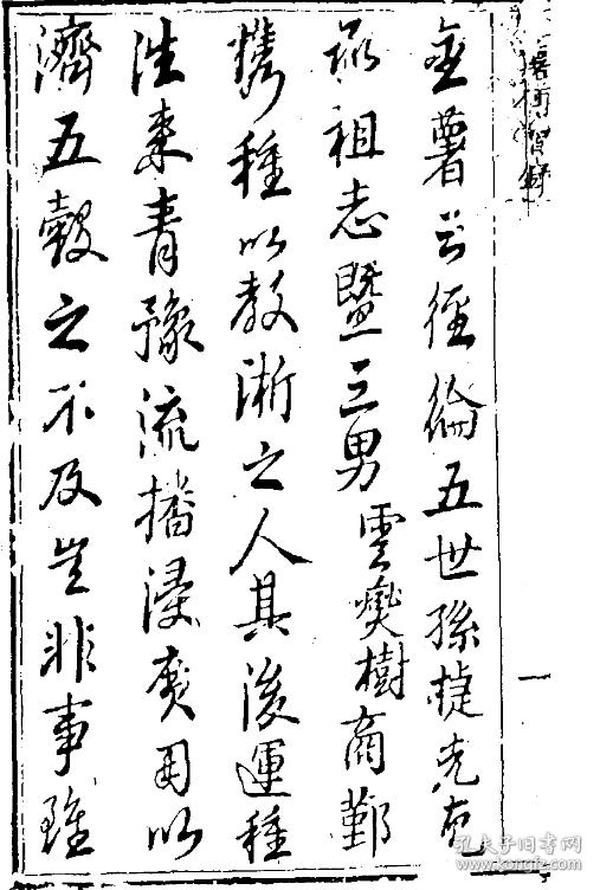 金薯傳習錄
一
金薯公經綸五世孫捷先克
承祖志暨三男雲燮樹商鄞
攜種以教浙之人其後運種
往来青豫流播浸廣用以
濟五穀之不及豈非事雖
孔夫子旧书网
www.kongfz.com